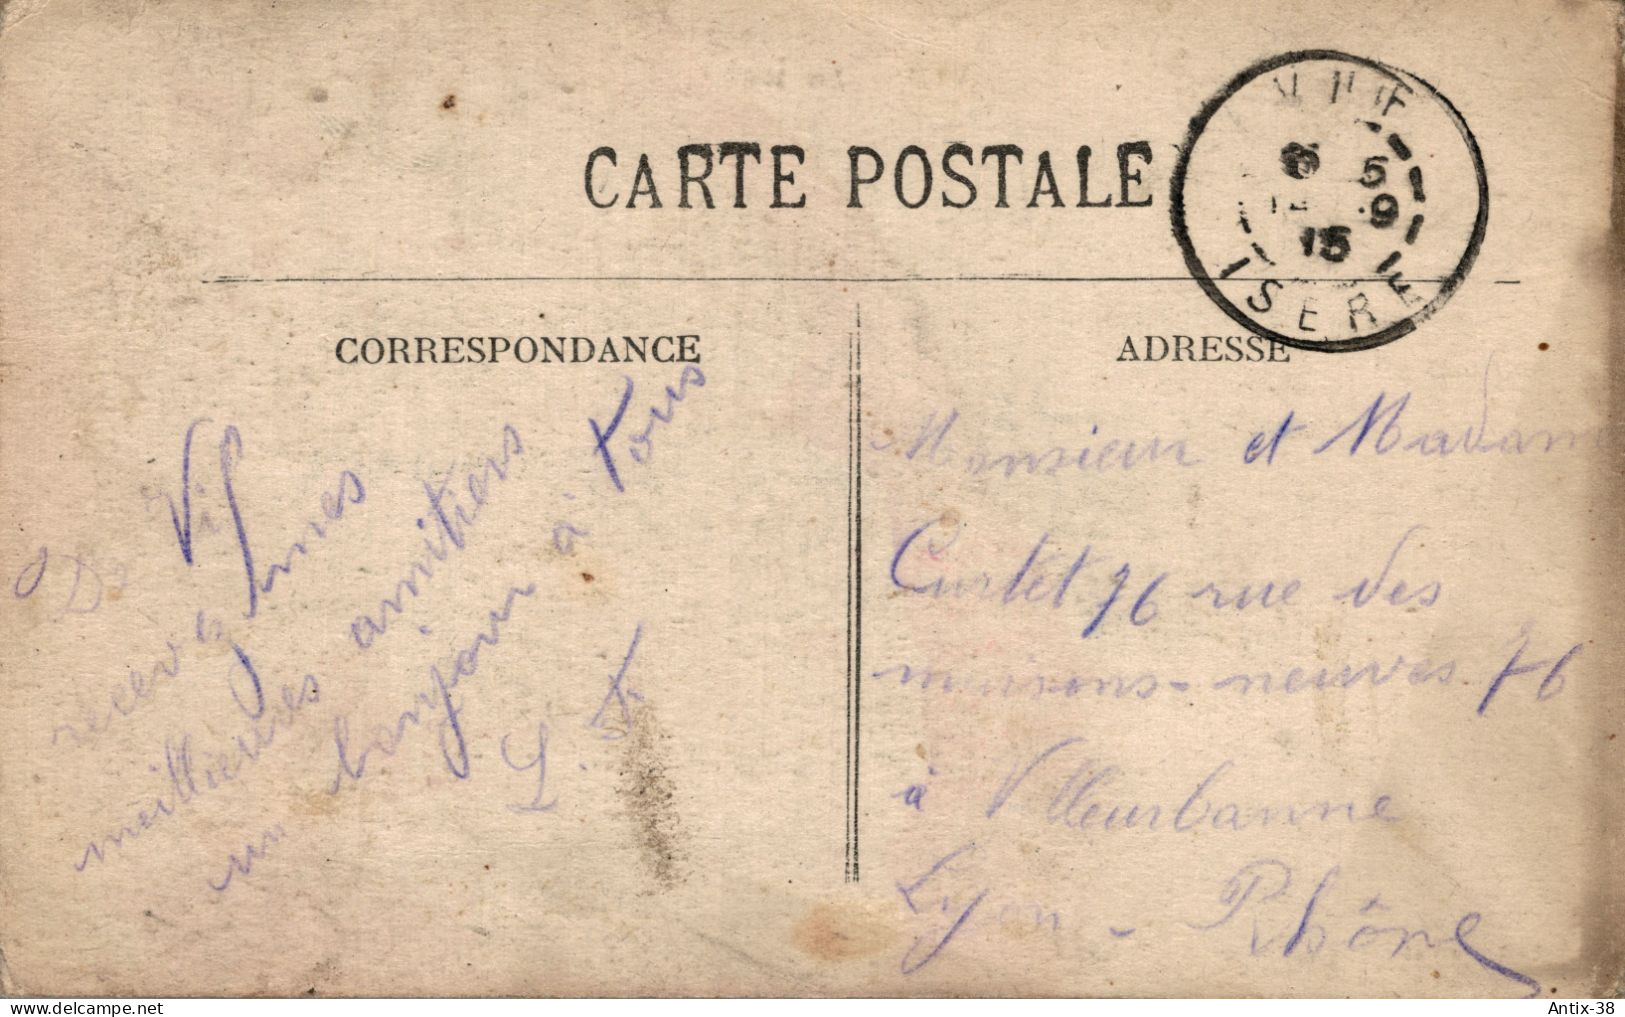 CARTE POSTALE
5
9
15
ISERE
CORRESPONDANCE
De Vif
recevez mes
meillieures amitiers
un bonjour à tous
L. F
ADRESSE
Monsieur et Madame
Curtet 76 rue des
maisons-neuves 76
à Villeurbanne
Lyon - Rhône
Antix-38